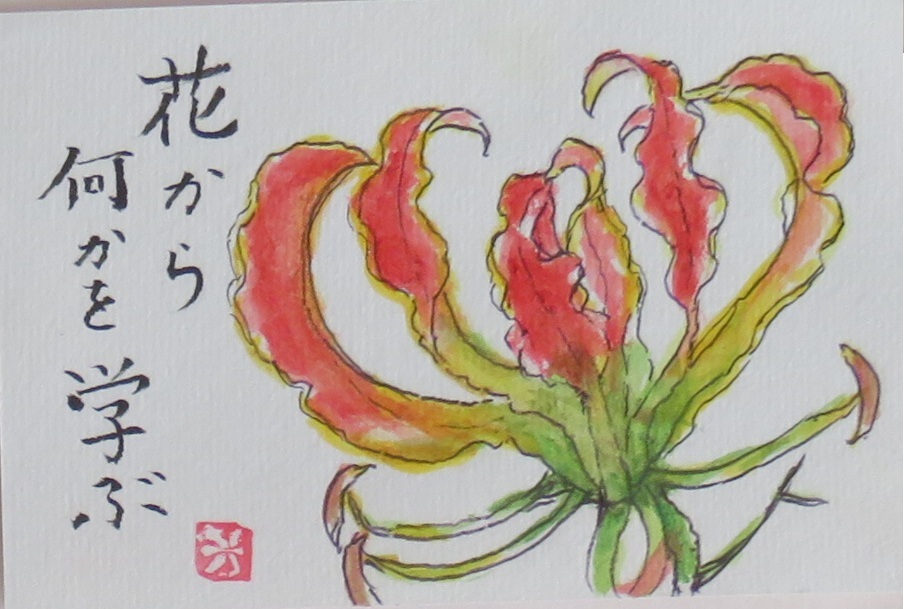 花から
何かを学ぶ